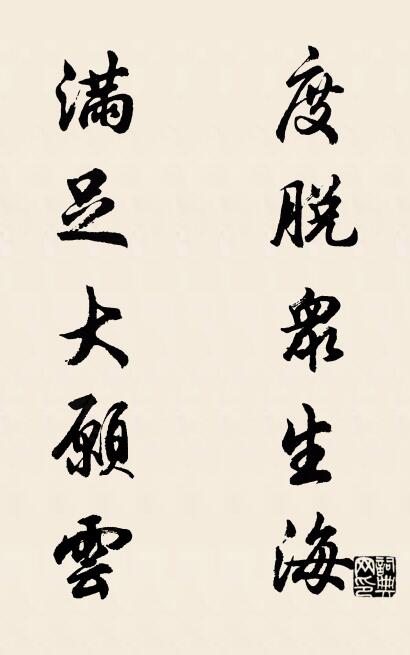 度脱衆生海
滿足大願雲
詞典網印